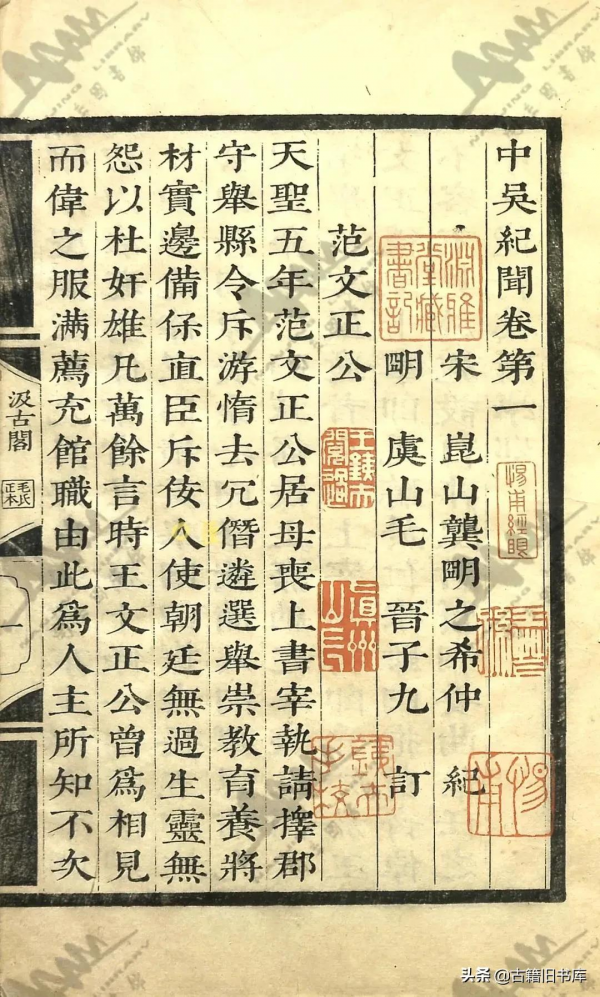 中吳紀聞卷第一
宋 崑山龔明之希仲 紀
明 虞山毛 晉子九 訂
范文正公
天聖五年范文正公居母喪上書宰執請擇郡
守舉縣令斥游惰去冗僭遴選舉崇教育養將
材實邊備保直臣斥佞人使朝廷無過生靈無
怨以杜奸雄凡萬餘言時王文正公曾為相見
而偉之服滿薦充館職由此為人主所知不次
汲古閣
毛氏
正本
一
淵雅
堂藏
書記
頭条 @古籍旧书库